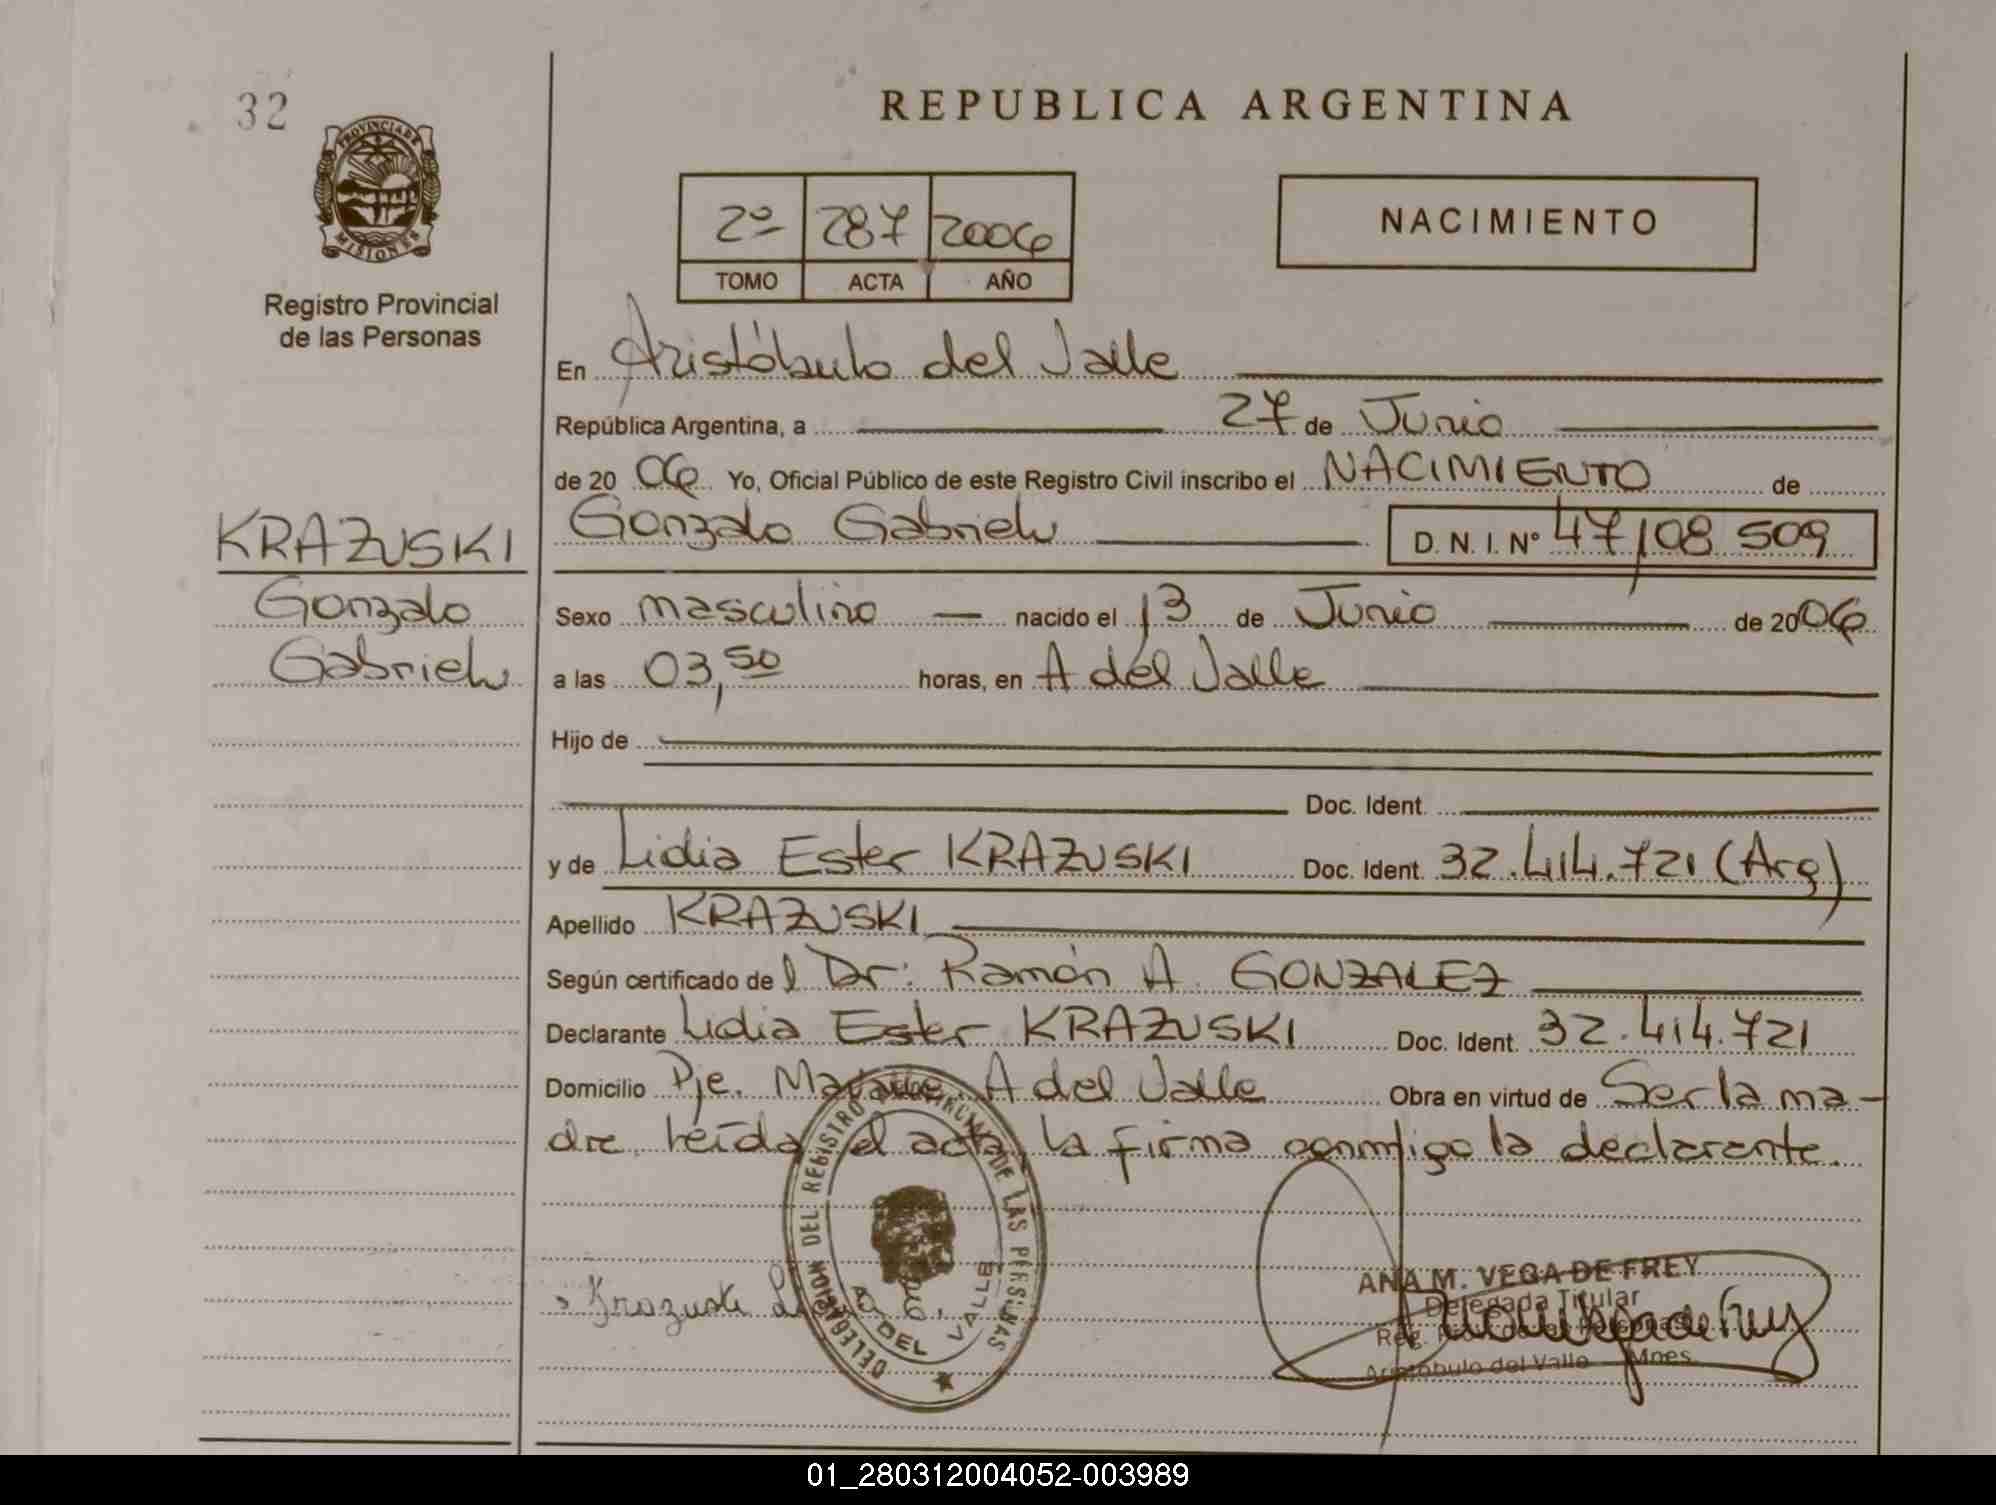 32
PROVINCIA DE
MISIONES
Registro Provincial
de las Personas
REPUBLICA ARGENTINA
2º 287 2006
TOMO ACTA AÑO
NACIMIENTO
En Aristóbulo del Valle
República Argentina, a 27 de Junio
de 20 06 Yo, Oficial Público de este Registro Civil inscribo el NACIMIENTO de
KRAZUSKI
Gonzalo
Gabriel
Gonzalo Gabriel D. N. I. Nº 47108 509
Sexo masculino nacido el 13 de Junio de 2006
a las 03,50 horas, en A del Valle
Hijo de
Doc. Ident.
y de Lidia Ester KRAZUSKI Doc. Ident. 32.414.721 (Arg)
Apellido KRAZUSKI
Según certificado del Dr: Ramón A. GONZALEZ
Declarante Lidia Ester KRAZUSKI Doc. Ident. 32.414.721
Domicilio Pje. A del Valle Obra en virtud de Ser la ma-
dre. leída el acta, la firma conmigo la declarante.
DELEGACION DEL REGISTRO PROVINCIAL DE LAS PERSONAS
A. DEL VALLE
Krazuski
ANA M. VEGA DE FREY
Delegada Titular
Reg.
Aristóbulo del Valle Mnes.
01_280312004052-003989